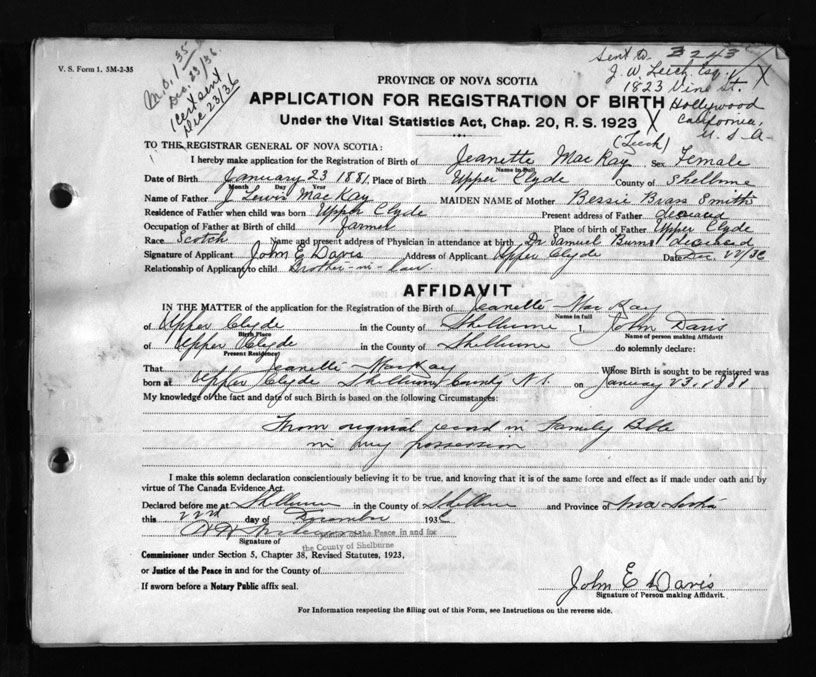 V. S. Form 1. 5M-2-35
M.O. 1/35
Dec. 23/36.
1 Cert sent
Dec 23/36
Sent to 3243
J. W. Leich Esq.
1823 Vine St.
Hollywood
California,
U. S. A.
PROVINCE OF NOVA SCOTIA
APPLICATION FOR REGISTRATION OF BIRTH
Under the Vital Statistics Act, Chap. 20, R. S. 1923
TO THE REGISTRAR GENERAL OF NOVA SCOTIA:
I hereby make application for the Registration of Birth of Jeanette MacKay Sex Female
Name in Full
Date of Birth January 23 1881 Place of Birth Upper Clyde County of Shelburne
Month Day Year
Name of Father J Lewis MacKay MAIDEN NAME of Mother Bessie Brass Smith
Residence of Father when child was born Upper Clyde Present address of Father deceased
Occupation of Father at Birth farmer Place of birth of Father Upper Clyde
Race Scotch Name and present address of Physician in attendance at birth Dr Samuel Burns deceased
Signature of Applicant John E Davis Address of Applicant Upper Clyde Date Dec 22/36
Relationship of Applicant to child Brother-in-law
AFFIDAVIT
IN THE MATTER of the application for the Registration of the Birth of Jeanette MacKay
Name in full
of Upper Clyde in the County of Shelburne I, John Davis
Birth Place Name of person making Affidavit
of Upper Clyde in the County of Shelburne do solemnly declare:
Present Residence)
That Jeanette MacKay Whose Birth is sought to be registered was
born at Upper Clyde Shelburne County N.S. on January 23, 1881
My knowledge of the fact and date of such Birth is based on the following Circumstances:
From original record in Family Bible
in my possession
I make this solemn declaration conscientiously believing it to be true, and knowing that it is of the same force and effect as if made under oath and by
virtue of The Canada Evidence Act.
Declared before me at Shelburne in the County of Shelburne and Province of Nova Scotia
this 22nd day of December 1936
Signature of the Peace in and for
the County of Shelburne
Commissioner under Section 5, Chapter 38, Revised Statutes, 1923,
or Justice of the Peace in and for the County of
If sworn before a Notary Public affix seal.
John E Davis
Signature of Person making Affidavit.
For Information respecting the filling out of this Form, see Instructions on the reverse side.